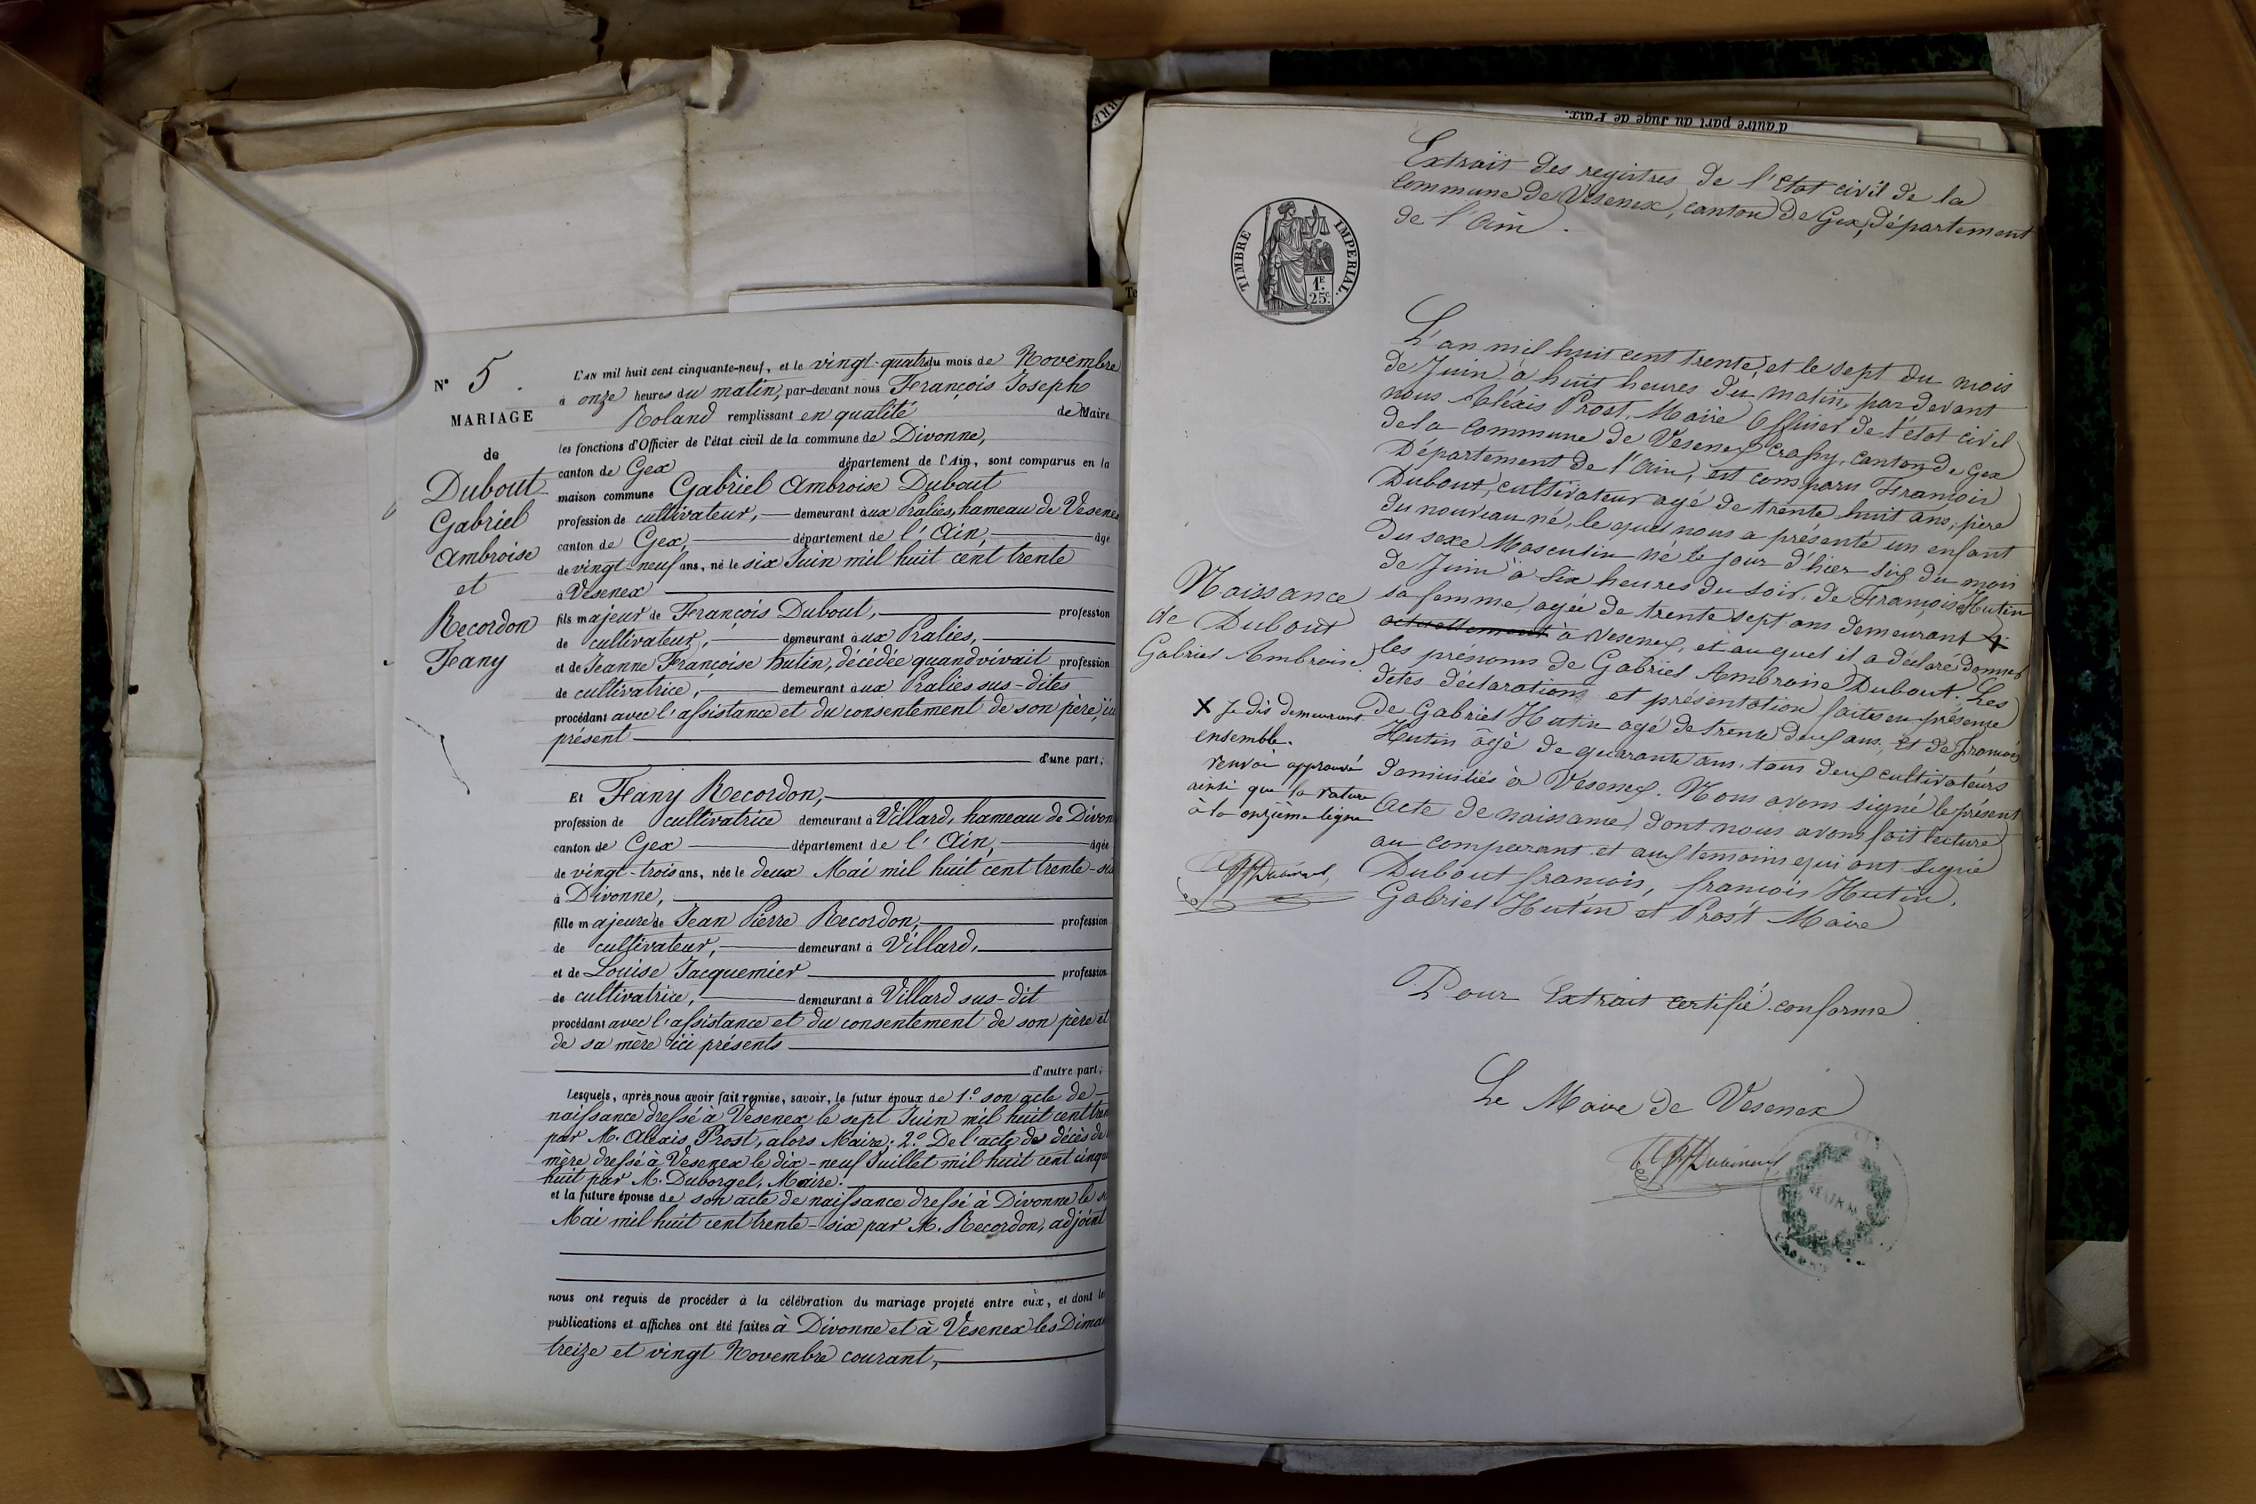 N° 5.
MARIAGE
de
Dubout
Gabriel
Ambroise
et
Recordon
Fany
L'AN mil huit cent cinquante-neuf, et le vingt-quatre du mois de Novembre
à onze heures du matin, par-devant nous François Joseph
Roland remplissant en qualité de Maire
les fonctions d'Officier de l'état civil de la commune de Divonne,
canton de Gex département de l'Ain, sont comparus en la
maison commune Gabriel Ambroise Dubout
profession de cultivateur, demeurant à aux Pralies, hameau de Vesenex
canton de Gex, département de l'Ain, âgé
de vingt-neuf ans, né le six Juin mil huit cent trente
à Vesenex
fils majeur de François Dubout, profession
de cultivateur, demeurant à aux Pralies,
et de Jeanne Françoise hutin, décédée quand vivait profession
de cultivatrice, demeurant à aux Pralies sus-dites
procédant avec l'assistance et du consentement de son père, ici
présent
d'une part;
Et Fany Recordon,
profession de cultivatrice demeurant à Villard, hameau de Divon
canton de Gex département de l'Ain, âgée
de vingt-trois ans, née le deux Mai mil huit cent trente-six
à Divonne,
fille majeure de Jean Pierre Recordon, profession
de cultivateur, demeurant à Villard,
et de Louise Jacquemier profession
de cultivatrice, demeurant à Villard sus-dit
procédant avec l'assistance et du consentement de son père et
de sa mère ici présents
d'autre part;
Lesquels, après nous avoir fait remise, savoir, le futur époux de 1.° son acte de
naissance dressé à Vesenex le sept Juin mil huit cent tren
par M. Alexis Prost, alors Maire; 2.° De l'acte de décès de
mère dressé à Vesenex le dix-neuf Juillet mil huit cent cinqu
huit par M. Duborgel, Maire.
et la future épouse de son acte de naissance dressé à Divonne le
Mai mil huit cent trente-six par M. Recordon, adjoint
nous ont requis de procéder à la célébration du mariage projeté entre eux, et dont les
publications et affiches ont été faites à Divonne et à Vesenex les Diman
treize et vingt Novembre courant,
d'autre part du Juge de Paix.
Extrait des registres de l'Etat civil de la
commune de Vesenex, canton de Gex, département
de l'Ain.
TIMBRE IMPERIAL.
1F.
25c.
L'an mil huit cent trente, et le sept du mois
de Juin à huit heures du matin, par devant
nous Aléxis Prost, Maire Officier de l'état civil
de la commune de Vesenex Crassy, canton de Gex
Département de l'Ain, est comparu François
Dubout, cultivateur agé de trente huit ans, père
du nouveau né, lequel nous a présenté un enfant
du sexe Masculin né le jour d'hier six du mois
de Juin à six heures du soir, de Françoise Hutin
sa femme, agée de trente sept ans demeurant X
actuellement à Vesenex, et auquel il a déclaré donner
les prénoms de Gabriel Ambroise Dubout. Les
dites déclarations et présentation faites en présence
de Gabriel Hutin agé de trente deux ans, et de François
Hutin âgé de quarante ans, tous deux cultivateurs
domiciliés à Vesenex. Nous avons signé le présent
acte de naissance, dont nous avons fait lecture
au comparant et aux temoins qui ont signé
Dubout françois, françois Hutin,
Gabriel Hutin et Prost Maire
Naissance
de Dubout
Gabriel Ambroise
X Je dis demeurant
ensemble.
renvoi approuvé
ainsi que la rature
à la onzième ligne
Pour Extrait certifié conforme
Le Maire de Vesenex
MAIRIE